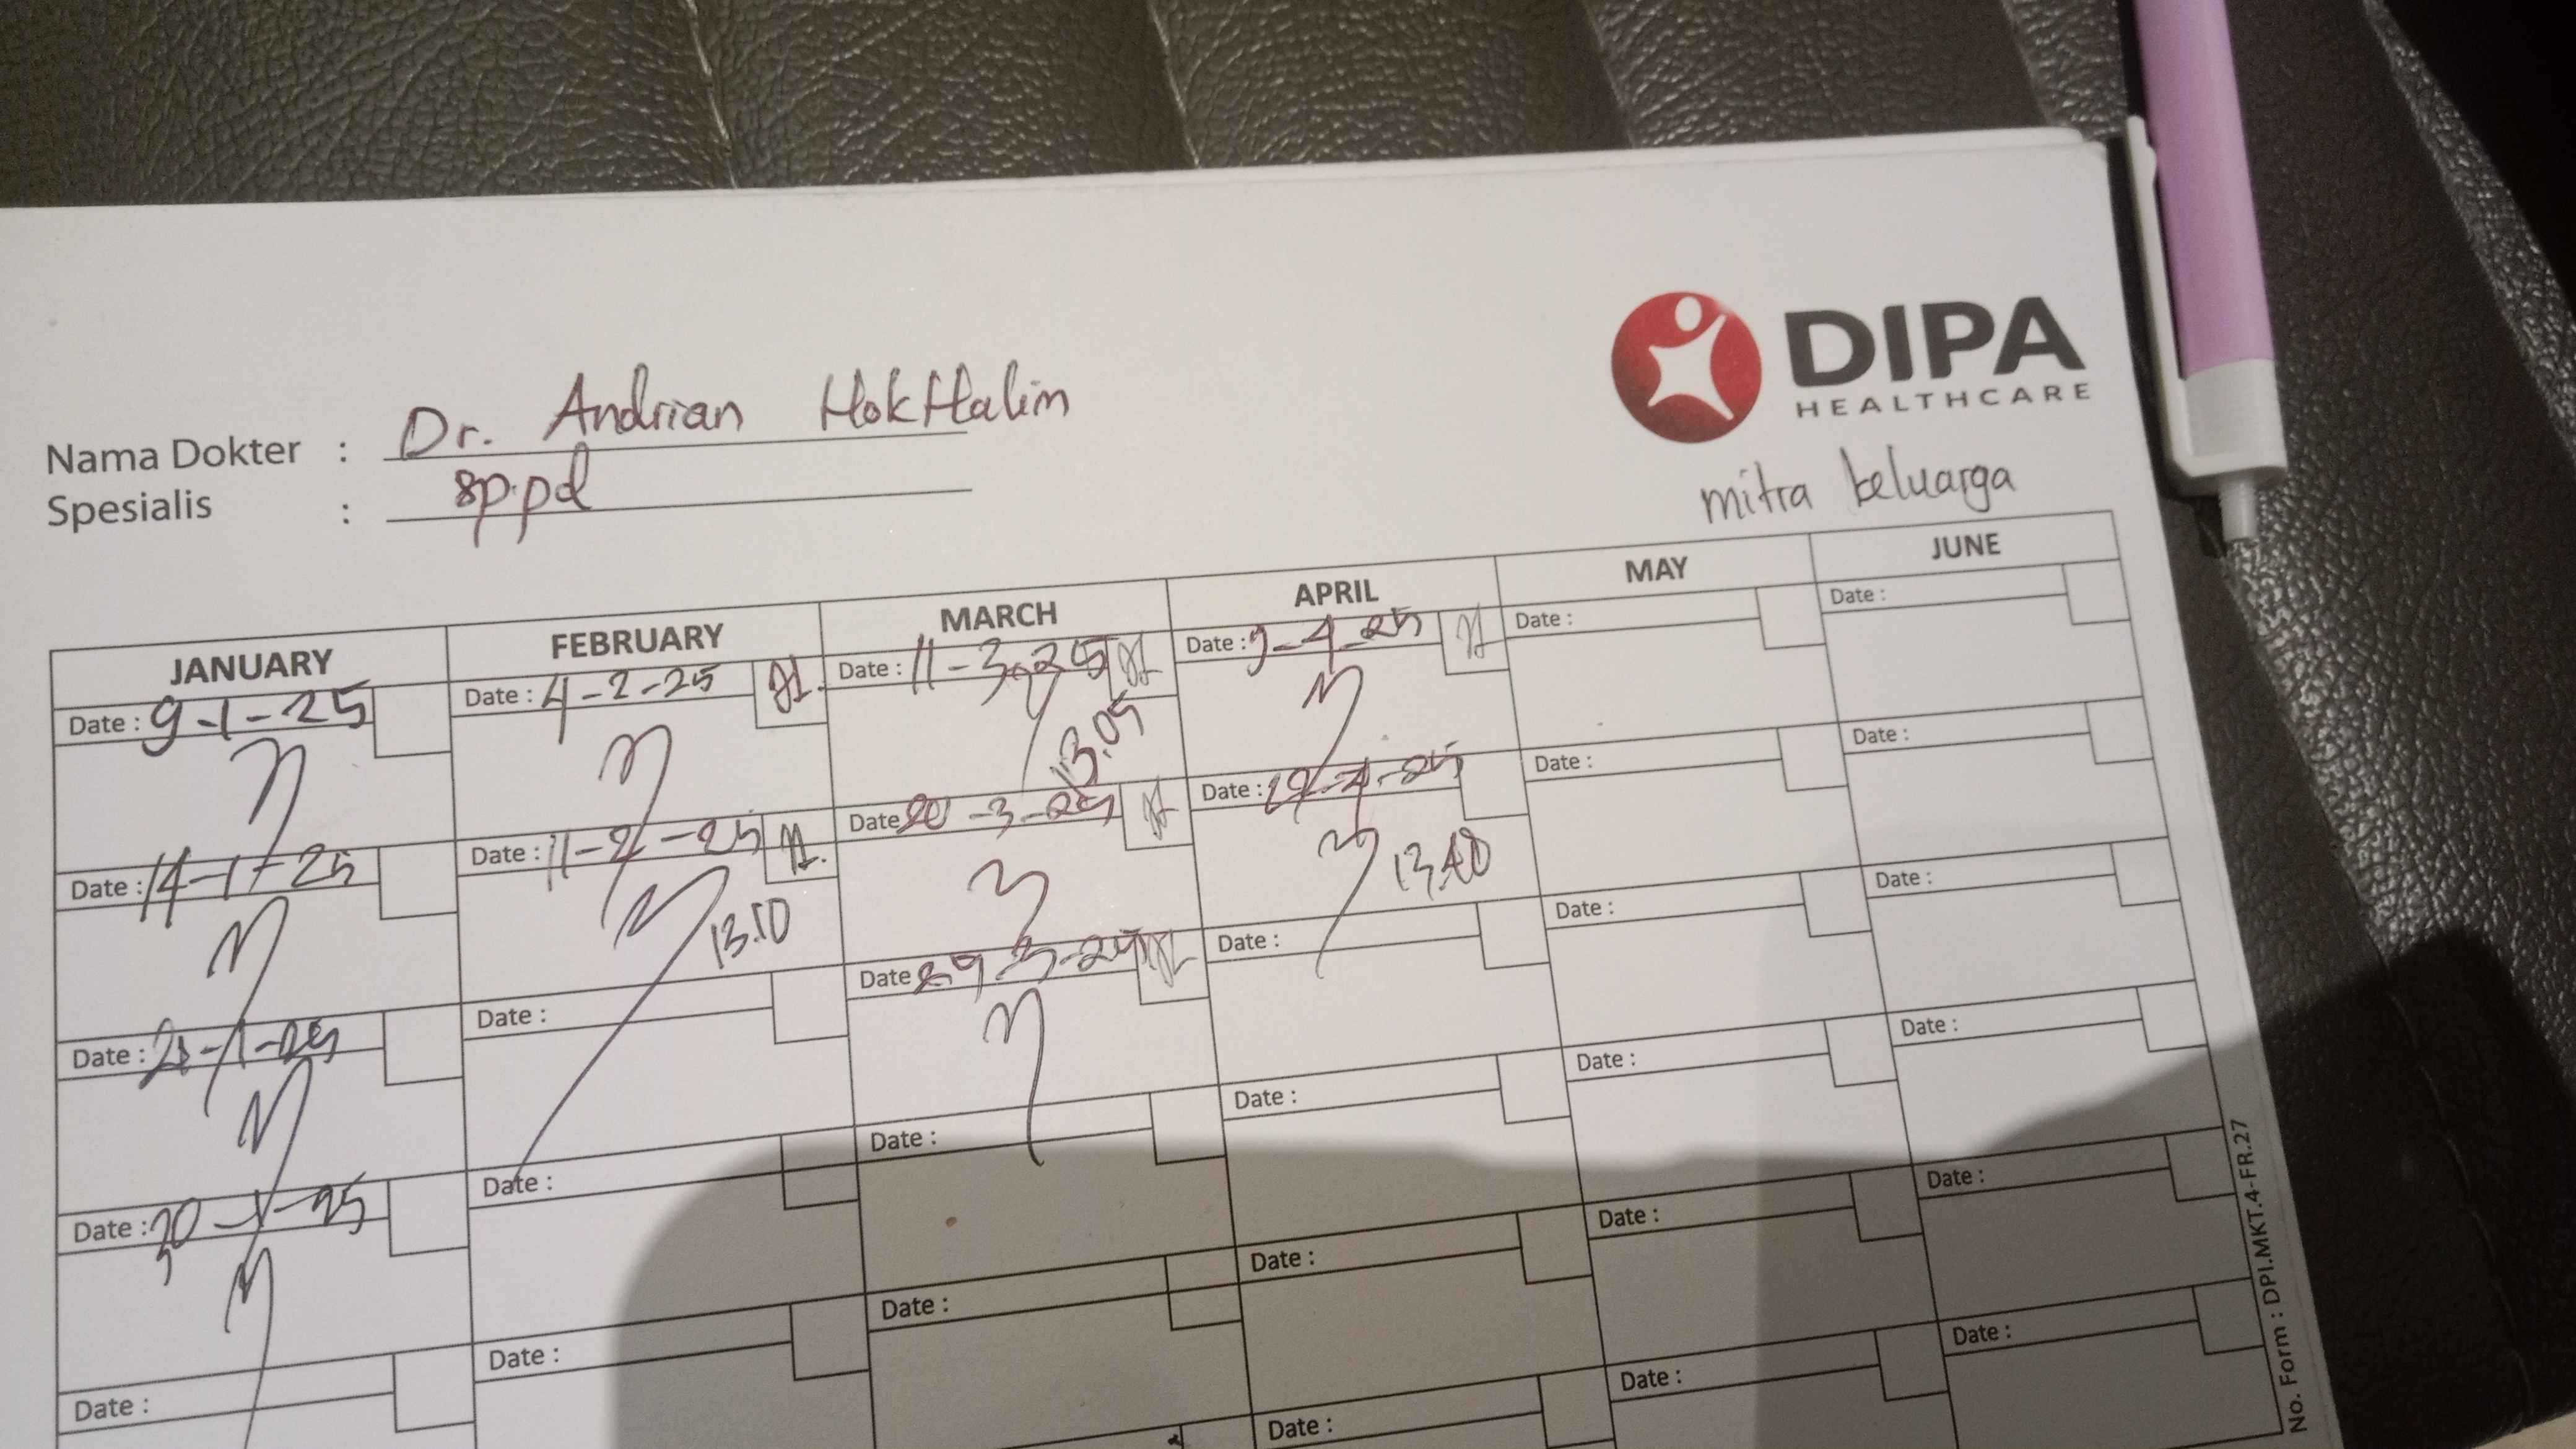 DIPA
HEALTHCARE
Nama Dokter : Dr. Andrian HokHalim
Spesialis : sp.pd
mitra keluarga
JANUARY FEBRUARY MARCH APRIL MAY JUNE
Date : 9-1-25 Date : 4-2-25 Date : 11-3-25 Date : 9-4-25 Date : Date :
13.05
Date : 14-1-25 Date : 11-2-25 Date 20-3-25 Date : Date : Date :
13.10 13.40
Date : 21-1-25 Date : Date Date : Date : Date :
Date : 30-1-25 Date : Date : Date : Date : Date :
Date : Date : Date : Date : Date : Date :
Date : Date : Date :
No. Form : DPI.MKT.4-FR.27